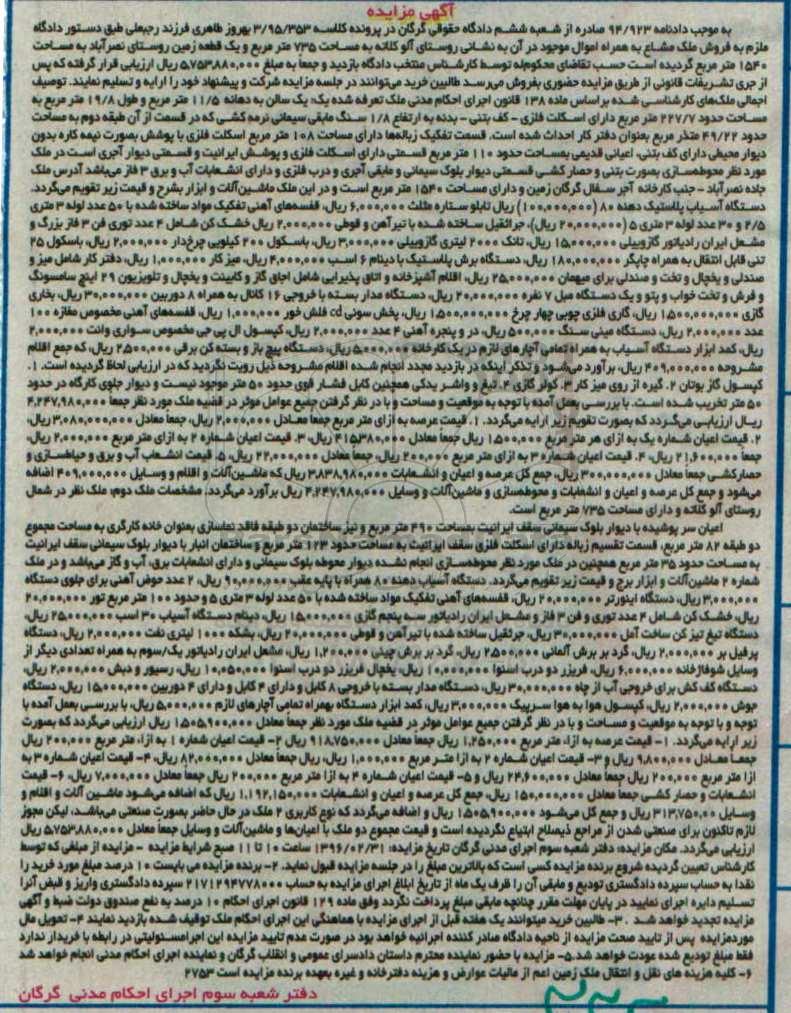 آگهی مزایده
به موجب دادنامه ۹۴/۹۲۳ صادره از شعبه ششم دادگاه حقوقی گرگان در پرونده کلاسه ۳/۹۵/۳۵۳ بهروز طاهری فرزند رجبعلی طبق دستور دادگاه
ملزم به فروش ملک مشاع به همراه اموال موجود در آن به نشانی روستای آلو کلاته به مساحت ۷۳۵ متر مربع و یک قطعه زمین روستای نصرآباد به مساحت
۱۵۴۰ متر مربع گردیده است حسب تقاضای محکوم‌له توسط کارشناس منتخب دادگاه بازدید و جمعا به مبلغ ۵,۷۵۳,۸۸۰,۰۰۰ ریال ارزیابی قرار گرفته که پس
از جری تشریفات قانونی از طریق مزایده حضوری بفروش می‌رسد طالبین خرید می‌توانند در جلسه مزایده شرکت و پیشنهاد خود را ارایه و تسلیم نمایند. توصیف
اجمالی ملک‌های کارشناسی شده براساس ماده ۱۳۸ قانون اجرای احکام مدنی ملک تعرفه شده یک، یک سالن به دهانه ۱۱/۵ متر مربع و طول ۱۹/۸ متر مربع به
مساحت حدود ۲۲۷/۷ متر مربع دارای اسکلت فلزی - کف بتنی - بدنه به ارتفاع ۱/۸ سنگ مابقی سیمانی نرمه کشی که در قسمت از آن طبقه دوم به مساحت
حدود ۴۹/۲۲ متر مربع بعنوان دفتر کار احداث شده است. قسمت تفکیک زباله‌ها دارای مساحت ۱۰۸ متر مربع اسکلت فلزی با پوشش بصورت نیمه کاره بدون
دیوار محیطی دارای کف بتنی، اعیانی قدیمی بمساحت حدود ۱۱۰ متر مربع قسمتی دارای اسکلت فلزی و پوشش ایرانیت و قسمتی دیوار آجری است در ملک
مورد نظر محوطه‌سازی بصورت بتنی و حصار کشی قسمتی دیوار بلوک سیمانی و مابقی آجری و درب فلزی و دارای انشعابات آب و برق ۳ فاز می‌باشد آدرس ملک
جاده نصرآباد - جنب کارخانه آجر سفال گرگان زمین و دارای مساحت ۱۵۴۰ متر مربع است و در این ملک ماشین‌آلات و ابزار بشرح و قیمت زیر تقویم می‌گردد.
دستگاه آسیاب پلاستیک دهنه ۸۰ (۱۰۰,۰۰۰,۰۰۰) ریال تابلو ستاره مثلث ۶,۰۰۰,۰۰۰ ریال، قفسه‌های آهنی تفکیک مواد ساخته شده با ۵۰ عدد لوله ۳ متری
۲/۵ و ۳۰ عدد لوله ۳ متری ۵ (۲۰,۰۰۰,۰۰۰ ریال)، جراثقیل ساخته شده با تیرآهن و قوطی ۲,۰۰۰,۰۰۰ ریال خشک کن شامل ۴ عدد توری فن ۳ فاز بزرگ و
مشعل ایران رادیاتور گازوییلی ۱۵,۰۰۰,۰۰۰ ریال، تانک ۲۰۰۰ لیتری گازوییلی ۳,۰۰۰,۰۰۰ ریال، باسکول ۲۰۰ کیلویی چرخ‌دار ۲,۰۰۰,۰۰۰ ریال، باسکول ۲۵
تنی قابل انتقال به همراه چاپگر ۱۸۰,۰۰۰,۰۰۰ ریال، دستگاه برش پلاستیک با دینام ۶ اسب ۴,۰۰۰,۰۰۰ ریال، میز کار ۱,۰۰۰,۰۰۰ ریال، دفتر کار شامل میز و
صندلی و یخچال و تخت و صندلی برای میهمان ۲۵,۰۰۰,۰۰۰ ریال، اقلام آشپزخانه و اتاق پذیرایی شامل اجاق گاز و کابینت و یخچال و تلویزیون ۲۹ اینچ سامسونگ
و فرش و تخت خواب و پتو و یک دستگاه مبل ۷ نفره ۲۰,۰۰۰,۰۰۰ ریال، دستگاه مدار بسته با خروجی ۱۶ کانال به همراه ۸ دوربین ۳۰,۰۰۰,۰۰۰ ریال، بخاری
گازی ۱,۵۰۰,۰۰۰ ریال، گاری فلزی چوبی چهار چرخ ۱,۵۰۰,۰۰۰ ریال، پخش سونی cd فلش خور ۱,۰۰۰,۰۰۰ ریال، قفسه‌های آهنی مخصوص مغازه ۱۰۰
عدد ۲,۰۰۰,۰۰۰ ریال، دستگاه مینی سنگ ۵۰۰,۰۰۰ ریال، در و پنجره آهنی ۴ عدد ۲,۰۰۰,۰۰۰ ریال، کپسول ال پی جی مخصوص سواری وانت ۲,۰۰۰,۰۰۰
ریال، کمد ابزار دستگاه آسیاب به همراه تمامی آچارهای لازم در یک کارخانه ۵,۰۰۰,۰۰۰ ریال، دستگاه پیچ باز و بسته کن برقی ۲,۵۰۰,۰۰۰ ریال، که جمع اقلام
مشروحه ۴۰۹,۰۰۰,۰۰۰ ریال، برآورد می‌شود و تذکر اینکه در بازدید مجدد انجام شده اقلام مشروحه ذیل رویت نگردید که در ارزیابی لحاظ گردیده است. ۱.
کپسول گاز بوتان ۲. گیره از روی میز کار ۳. کولر گازی ۴. تیغ و واشر یدکی همچنین کابل فشار قوی حدود ۵۰ متر موجود نیست و دیوار جلوی کارگاه در حدود
۵۰ متر تخریب شده است. با بررسی بعمل آمده با توجه به موقعیت و مساحت و با در نظر گرفتن جمیع عوامل موثر در قضیه ملک مورد نظر جمعا ۴,۲۴۷,۹۸۰,۰۰۰
ریال ارزیابی می‌گردد که بصورت تقویم زیر ارایه می‌گردد. ۱. قیمت عرصه به ازای متر مربع جمعا معادل ۲,۰۰۰,۰۰۰ ریال، جمعا معادل ۳,۰۸۰,۰۰۰,۰۰۰ ریال،
۲. قیمت اعیان شماره یک به ازای هر متر مربع ۱,۵۰۰,۰۰۰ ریال جمعا معادل ۴۱۵,۳۸۰,۰۰۰ ریال، ۳. قیمت اعیان شماره ۲ به ازای متر مربع ۲,۰۰۰,۰۰۰ ریال،
جمعا ۲۱,۶۰۰,۰۰۰ ریال، ۴. قیمت اعیان شماره ۳ به ازای متر مربع ۲۰۰,۰۰۰ ریال، جمعا معادل ۲۲,۰۰۰,۰۰۰ ریال، ۵. قیمت انشعاب آب و برق و حیاط‌سازی و
حصارکشی جمعا معادل ۳۰۰,۰۰۰,۰۰۰ ریال، جمع کل عرصه و اعیان و انشعابات ۳,۸۳۸,۹۸۰,۰۰۰ ریال که ماشین‌آلات و اقلام و وسایل ۴۰۹,۰۰۰,۰۰۰ اضافه
می‌شود و جمع کل عرصه و اعیان و انشعابات و محوطه‌سازی و ماشین‌آلات و وسایل ۴,۲۴۷,۹۸۰,۰۰۰ ریال برآورد می‌گردد. مشخصات ملک دوم، ملک نظر در شمال
روستای آلو کلاته و دارای مساحت ۷۳۵ متر مربع است.
اعیان سر پوشیده با دیوار بلوک سیمانی سقف ایرانیت بمساحت ۴۹۰ متر مربع و نیز ساختمان دو طبقه فاقد نماسازی بعنوان خانه کارگری به مساحت مجموع
دو طبقه ۸۲ متر مربع، قسمت تقسیم زباله دارای اسکلت فلزی سقف ایرانیت به مساحت حدود ۱۲۳ متر مربع و ساختمان انبار با دیوار بلوک سیمانی سقف ایرانیت
به مساحت حدود ۳۵ متر مربع همچنین در ملک مورد نظر محوطه‌سازی انجام نشده دیوار محوطه بلوک سیمانی و دارای انشعابات برق، آب و گاز می‌باشد و در ملک
شماره ۲ ماشین‌آلات و ابزار برج و قیمت زیر تقویم می‌گردد. دستگاه آسیاب دهنه ۸۰ همراه با پایه عقب ۹۰,۰۰۰,۰۰۰ ریال، ۲ عدد حوض آهنی برای جلوی دستگاه
۳,۰۰۰,۰۰۰ ریال، دستگاه اینورتر ۲۰,۰۰۰,۰۰۰ ریال، قفسه‌های آهنی تفکیک مواد ساخته شده با ۵۰ عدد لوله ۳ متری ۵ و حدود ۱۰۰ متر مربع تور ۲۰,۰۰۰,۰۰۰
ریال، خشک کن شامل ۴ عدد توری و فن ۳ فاز و مشعل ایران رادیاتور سه پنجم گازی ۱۵,۰۰۰,۰۰۰ ریال، دینام دستگاه آسیاب ۳۰ اسب ۲۵,۰۰۰,۰۰۰ ریال،
دستگاه تیغ تیز کن ساخت آمل ۳۰,۰۰۰,۰۰۰ ریال، جرثقیل ساخته شده با تیرآهن و قوطی ۲۰,۰۰۰,۰۰۰ ریال، بشکه ۱۰۰۰ لیتری نفت ۲,۰۰۰,۰۰۰ ریال، دستگاه
پرفیل بر ۲,۰۰۰,۰۰۰ ریال، گرد بر برش آلمانی ۲,۵۰۰,۰۰۰ ریال، گرد بر برش چینی ۱,۲۰۰,۰۰۰ ریال، مشعل ایران رادیاتور یک/سوم به همراه تعدادی دیگر از
وسایل شوفاژخانه ۶,۰۰۰,۰۰۰ ریال، فریزر دو درب اسنوا ۱۰,۰۰۰,۰۰۰ ریال، یخچال فریزر دو درب اسنوا ۱۰,۰۵۰,۰۰۰ ریال، رسیور و دیش ۲,۰۰۰,۰۰۰ ریال،
دستگاه کف کش برای خروجی آب از چاه ۳۰,۰۰۰,۰۰۰ ریال، دستگاه مدار بسته با خروجی ۸ کابل و دارای ۴ کابل و دارای ۴ دوربین ۱۵,۰۰۰,۰۰۰ ریال، دستگاه
جوش ۲,۰۰۰,۰۰۰ ریال، کپسول هوا به هوا سرپیک ۳,۰۰۰,۰۰۰ ریال، کمد ابزار دستگاه بهمراه تمامی آچارهای لازم ۵,۰۰۰,۰۰۰ ریال، با بررسی بعمل آمده با
توجه و با توجه به موقعیت و مساحت و با در نظر گرفتن جمیع عوامل موثر در قضیه ملک مورد نظر جمعا معادل ۱,۵۰۵,۹۰۰,۰۰۰ ریال ارزیابی می‌گردد که بصورت
زیر ارایه می‌گردد. ۱- قیمت عرصه به ازاء متر مربع ۱,۲۵۰,۰۰۰ ریال جمعا معادل ۹۱۸,۷۵۰,۰۰۰ ریال ۲- قیمت اعیان شماره ۱ به ازاء متر مربع ۲۰۰,۰۰۰ ریال
جمعا معادل ۹,۸۰۰,۰۰۰ ریال و ۳- قیمت اعیان شماره ۲ به ازا متر مربع ۱,۰۰۰,۰۰۰ ریال، ریال جمعا معادل ۸۲,۰۰۰,۰۰۰ ریال، ۴- قیمت اعیان شماره ۳۰ به
ازا متر مربع ۲۰۰,۰۰۰ ریال جمعا معادل ۲۴,۶۰۰,۰۰۰ ریال و ۵- قیمت اعیان شماره ۴ به ازا متر مربع ۲۰۰,۰۰۰ ریال جمعا معادل ۷,۰۰۰,۰۰۰ ریال، ۶- قیمت
انشعابات و حصار کشی جمعا معادل ۱۵۰,۰۰۰,۰۰۰ ریال، جمع کل عرصه و اعیان و انشعابات ۱,۱۹۲,۱۵۰,۰۰۰ ریال که اضافه می‌شود ماشین آلات و اقلام و
وسایل ۳۱۳,۷۵۰,۰۰ ریال و جمع کل می‌شود ۱,۵۰۵,۹۰۰,۰۰۰ ریال و اضافه می‌گردد که نوع کاربری ۲ ملک در حال حاضر بصورت صنعتی می‌باشد، لیکن مجوز
لازم تاکنون برای صنعتی شدن از مراجع ذیصلاح ابتیاع نگردیده است و قیمت مجموع دو ملک با اعیان‌ها و ماشین‌آلات و وسایل جمعا معادل ۵,۷۵۳,۸۸۰,۰۰۰ ریال
ارزیابی می‌گردد. مکان مزایده: دفتر شعبه سوم اجرای مدنی گرگان تاریخ مزایده: ۱۳۹۶/۰۲/۳۱ ساعت ۱۰ تا ۱۱ صبح شرایط مزایده - مزایده از مبلغی که توسط
کارشناس تعیین گردیده شروع برنده مزایده کسی است که بالاترین مبلغ را در جلسه مزایده قبول نماید. ۲- برنده مزایده می بایست ۱۰ درصد مبلغ مورد خرید را
نقدا به حساب سپرده دادگستری تودیع و مابقی آن را ظرف یک ماه از تاریخ ابلاغ اجرای مزایده به حساب ۲۱۷۱۲۹۴۷۷۸۰۰۰ سپرده دادگستری واریز و قبض آنرا
تسلیم دایره اجرای نمایید در پایان مهلت مقرر چنانچه مابقی مبلغ پرداخت نگردد وفق ماده ۱۲۹ قانون اجرای احکام ۱۰ درصد به نفع صندوق دولت ضبط و آگهی
مزایده تجدید خواهد شد. ۳- طالبین خرید میتوانند یک هفته قبل از اجرای مزایده با هماهنگی این اجرای احکام ملک توقیف شده بازدید نمایند ۴- تحویل مال
موردمزایده پس از تایید صحت مزایده از ناحیه دادگاه صادر کننده اجرائیه خواهد بود در صورت عدم تایید مزایده این اجرامسئولیتی در رابطه با خریدار ندارد
فقط مبلغ تودیع شده عودت خواهد شد.۵- مزایده با حضور نماینده محترم داستان دادسرای عمومی و انقلاب گرگان و نماینده اجرای احکام مدنی انجام خواهد شد
۶- کلیه هزینه های نقل و انتقال ملک زمین اعم از مالیات عوارض و هزینه دفترخانه و غیره بعهده برنده مزایده است ۲۷۵۳
دفتر شعبه سوم اجرای احکام مدنی گرگان